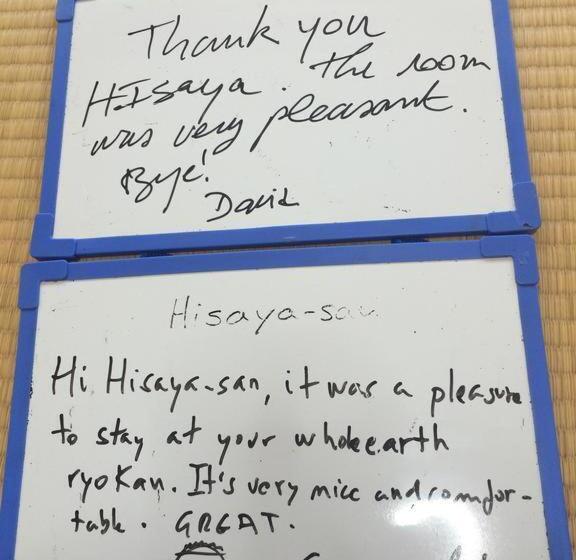 Thank you
HIsaya. the room
was very pleasant.
Bye!
David
Hisaya-san
Hi Hisaya-san, it was a pleasure
to stay at your wholeearth
ryokan. It's very nice and comfor-
table. GREAT.